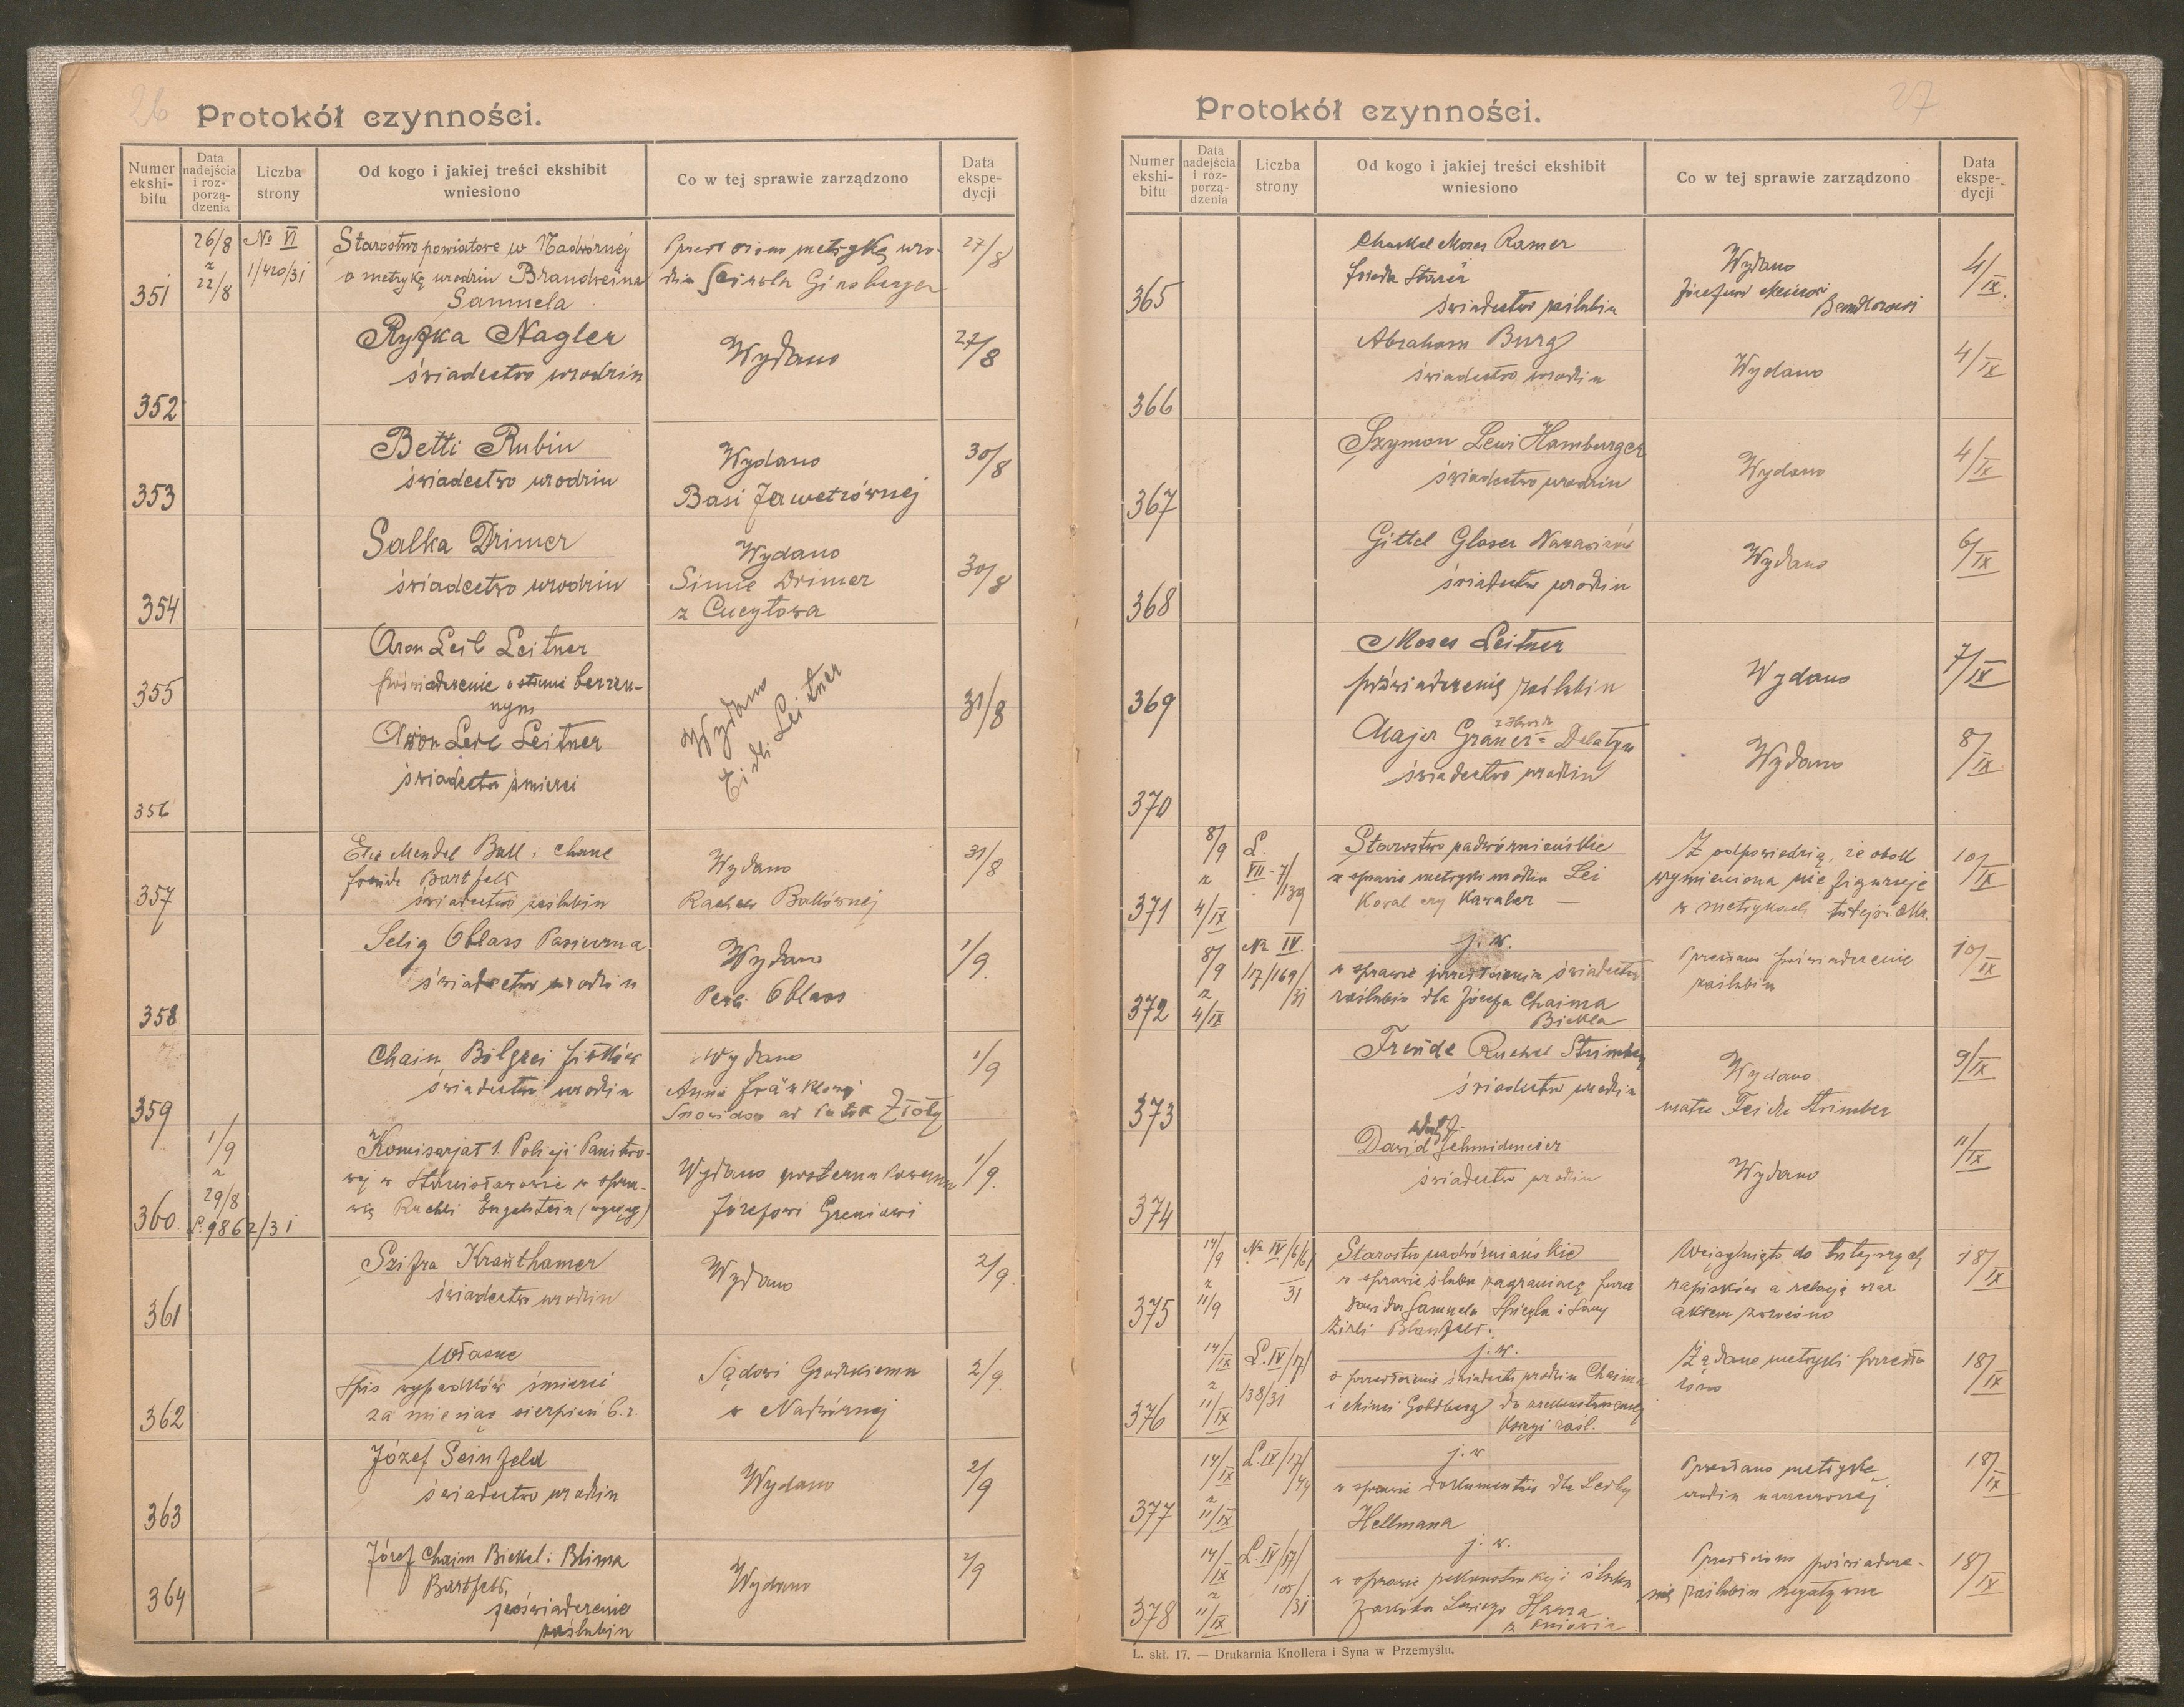 26
Protokół czynności.
Numer ekshi- bitu
Data nadejścia i roz- porzą- dzenia
Liczba strony
Od kogo i jakiej treści ekshibit wniesiono
Co w tej sprawie zarządzono
Data ekspe- dycji
351
26/8 z 22/8
No VI 1/420/31
Starostwo powiatowe w Nadwórnej
o metrykę urodzin Brandweina
Samuela
metrykę uro-
dzin Ginsberger
27/8
352
Ryfka Nagler
świadectwo urodzin
Wydano
27/8
353
Betti Rubin
świadectwo urodzin
Wydano
Basi Jawetzównej
30/8
354
Salka Drimer
świadectwo urodzin
Wydano
Simie Drimer
z Cucyłowa
30/8
355
Aron Leib Leitner
poświadczenie o stanie bezżen-
nym
356
Aron Leib Leitner
świadectwo śmierci
Wydano
Eidli Leitner
31/8
357
Elie Mendel Ball i Chane
Bartfeld
świadectwo zaślubin
Wydano
Rachew Balównej
31/8
358
Selig Oblass Pasieczna
świadectwo urodzin
Wydano
Perli Oblass
1/9
359
Chaim Bolgrei
świadectwo urodzin
Wydano
Anna Fränklowej
Złoty
1/9
360
1/9 z 29/8
L: 9862/31
Komisarjat 1. Policji Państwo-
wej w Stanisławowie w spra-
wie Ruchli Engelstein (wyciąg)
Wydano posterunkowemu
Józefowi Greniowi
1/9
361
Szifra Krauthamer
świadectwo urodzin
Wydano
2/9
362
Własne
spis wypadków śmierci
za miesiąc sierpień b.r.
Sądowi Grodzkiemu
w Nadwórnej
2/9
363
Józef Seinfeld
świadectwo urodzin
Wydano
2/9
364
Józef Chaim Bickel i Blima
Bartfeld,
poświadczenie
zaślubin
Wydano
2/9
27
Protokół czynności.
Numer ekshi- bitu
Data nadejścia i roz- porzą- dzenia
Liczba strony
Od kogo i jakiej treści ekshibit wniesiono
Co w tej sprawie zarządzono
Data ekspe- dycji
365
Chaskel Moses Ramer
Frieda
świadectwo zaślubin
Wydano
Józefowi
4/IX
366
Abraham Burg
świadectwo urodzin
Wydano
4/IX
367
Szymon Lewi Hamburger
świadectwo urodzin
Wydano
4/IX
368
Gittel Glaser
świadectwo urodzin
Wydano
6/IX
369
Moses Leitner
poświadczenie zaślubin
Wydano
7/IX
370
Majer Graner Delatyn
świadectwo urodzin
Wydano
8/IX
371
8/9 z 4/IX
L. VII-7/139
Starostwo nadwórniańskie
w sprawie metryki urodzin Lei
Kowal czy Kawaler —
Z odpowiedzią, że obok
wymieniona nie figuruje
w metrykach
10/IX
372
8/9 z 4/IX
No IV. 17/169/31
j. w.
w sprawie przesłania świadectwa
zaślubin dla Józefa Chaima
Bickla
Przesłano poświadczenie
zaślubin
10/IX
373
Freude Ruchel Strimber
świadectwo urodzin
Wydano
matce Feidze Strimber
9/IX
374
Wolf
Dawid Schmidmeier
świadectwo urodzin
Wydano
11/IX
375
14/9 z 11/9
No IV/6/6/31
Starostwo nadwórniańskie
w sprawie ślubu zagranicą przez
Dawida Samuela Spiegla i
Wciągnięto do tutejszych
zapisków a relację wraz
aktem zwrócono
18/IX
376
14/IX z 11/IX
L. IV/17/138/31
j. w.
o przesłanie świadectw urodzin Chaima
i Goldberg do
księgi zaśl.
Żądane metryki przesła-
no
18/IX
377
14/IX z 11/IX
L. IV/17/
j. w
w sprawie dokumentów dla Leiby
Hellmana
Przesłano metrykę
urodzin
18/IX
378
14/IX z 11/IX
L. IV/17/105/31
j. w.
w sprawie ślubu
Przesłano poświadcze-
nie zaślubin negatywne
18/IX
L. skł. 17. — Drukarnia Knollera i Syna w Przemyślu.